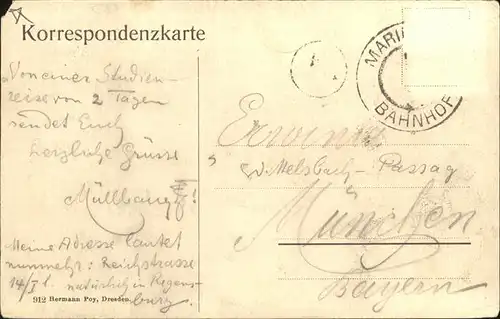 Korrespondenzkarte
Von einer Studien-
reise von 2 Tagen
sendet Euch
herzliche Grüsse
Meine Adresse lautet
nunmehr: Reichstrasse
14/I l. natürlich in Regens-
burg.
912 Hermann Poy, Dresden.
MARIE
BAHNHOF
Passag
München
Bayern